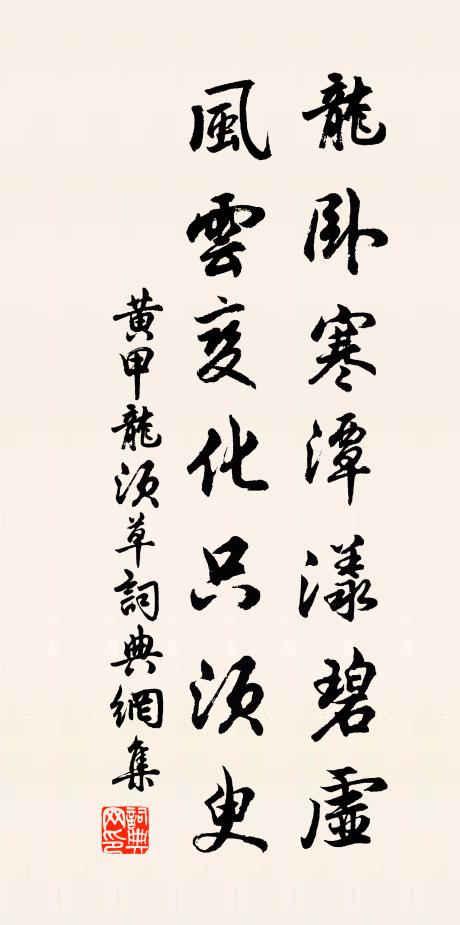 龍卧寒潭漾碧虛
風雲变化只須臾
黃甲龍須草詞典網集
詞典網印